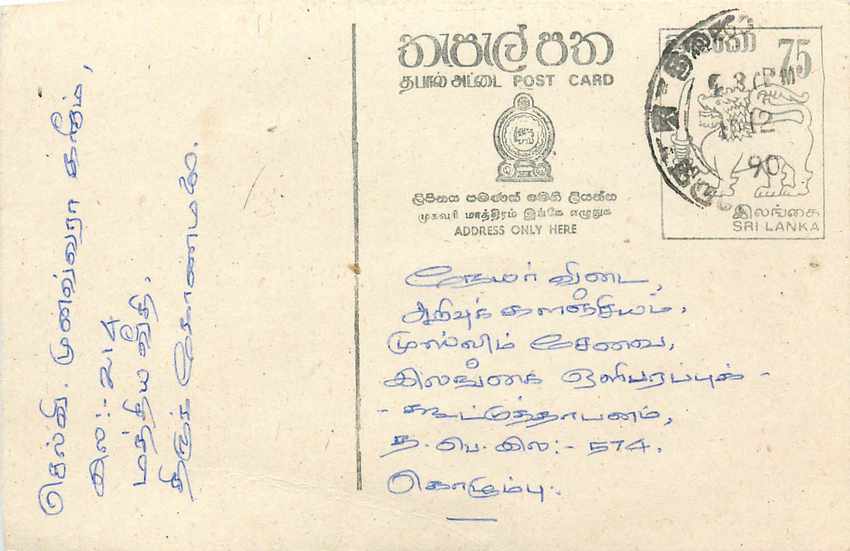 செல்வி. முனவ்வரா காதிம்,
இல:- 214
மத்திய வீதி,
திருக் கோணமலை.
තැපැල් පත
தபால் அட்டை POST CARD
ලිපිනය පමණක් මෙහි ලියන්න
முகவரி மாத்திரம் இங்கே எழுதுக
ADDRESS ONLY HERE
75
12
90
இலங்கை
SRI LANKA
நேயர் விடை,
அறிவுக் களஞ்சியம்,
முஸ்லிம் சேவை,
இலங்கை ஒலிபரப்புக் -
- கூட்டுத்தாபனம்,
த. பெ. இல:- 574.
கொழும்பு.